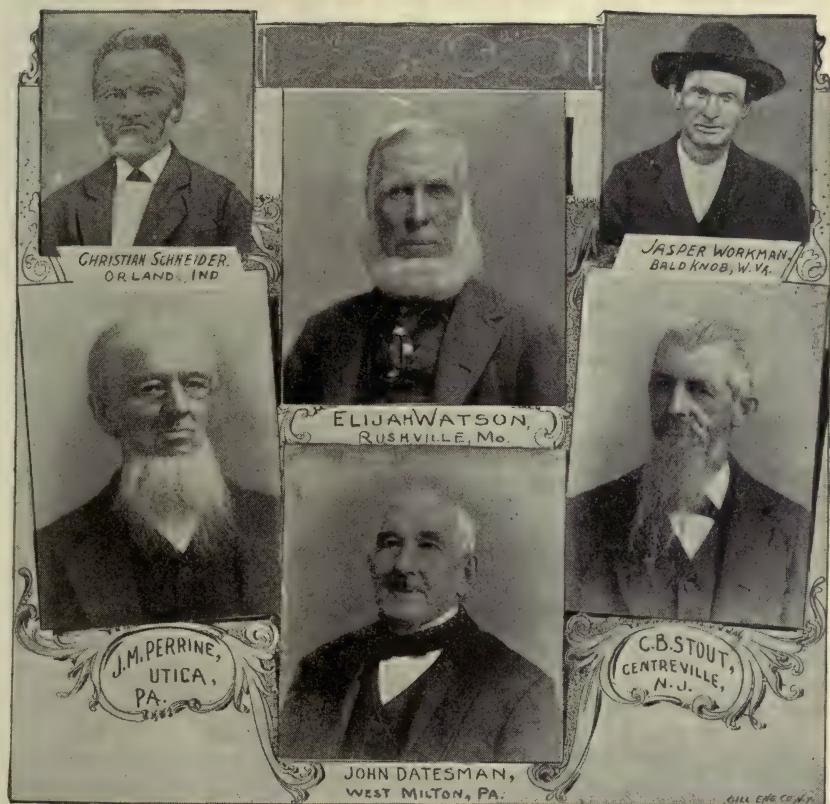 CHRISTIAN SCHNEIDER.
ORLAND, IND
JASPER WORKMAN.
BALD KNOB, W. VA.
ELIJAH WATSON,
RUSHVILLE, MO.
J. M. PERRINE,
UTICA,
PA.
C. B. STOUT,
CENTREVILLE,
N. J.
JOHN DATESMAN,
WEST MILTON, PA.
GILL ENG CO. N.Y.